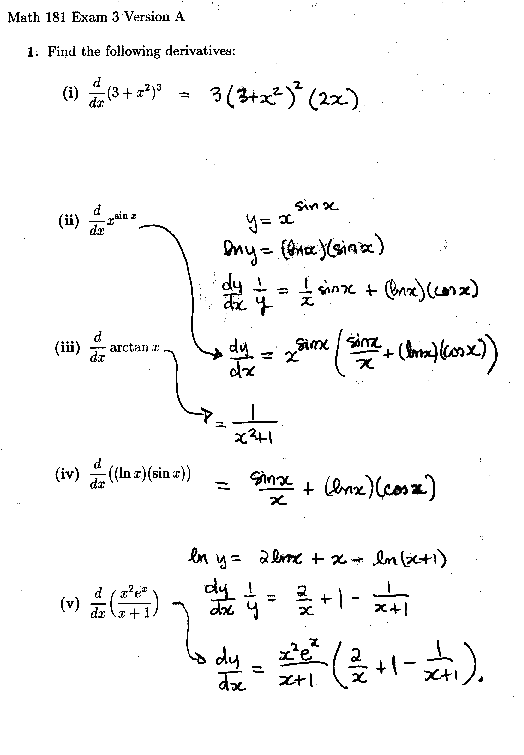 Math 181 Exam 3 Version A
1. Find the following derivatives:
(i) d/dx (3 + x²)³ = 3(3+x²)² (2x)
(ii) d/dx x^(sin x)
y = x^(sin x)
ln y = (ln x)(sin x)
dy/dx 1/y = 1/x sin x + (ln x)(cos x)
dy/dx = x^(sin x) (sin x / x + (ln x)(cos x))
(iii) d/dx arctan x
= 1/(x²+1)
(iv) d/dx ((ln x)(sin x)) = sin x / x + (ln x)(cos x)
(v) d/dx (x²eˣ/(x + 1))
ln y = 2 ln x + x - ln(x+1)
dy/dx 1/y = 2/x + 1 - 1/(x+1)
dy/dx = x²eˣ/(x+1) (2/x + 1 - 1/(x+1)).